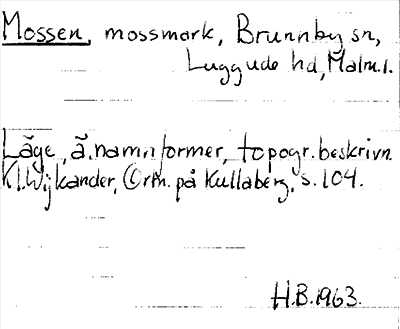 Mossen, mossmark, Brunnby sn,
Luggude hd, Malm.l.
Läge, ä. namnformer, topogr. beskrivn.
Kl. Wijkander, Ortn. på Kullaberg, s. 104.
H.B. 1963.